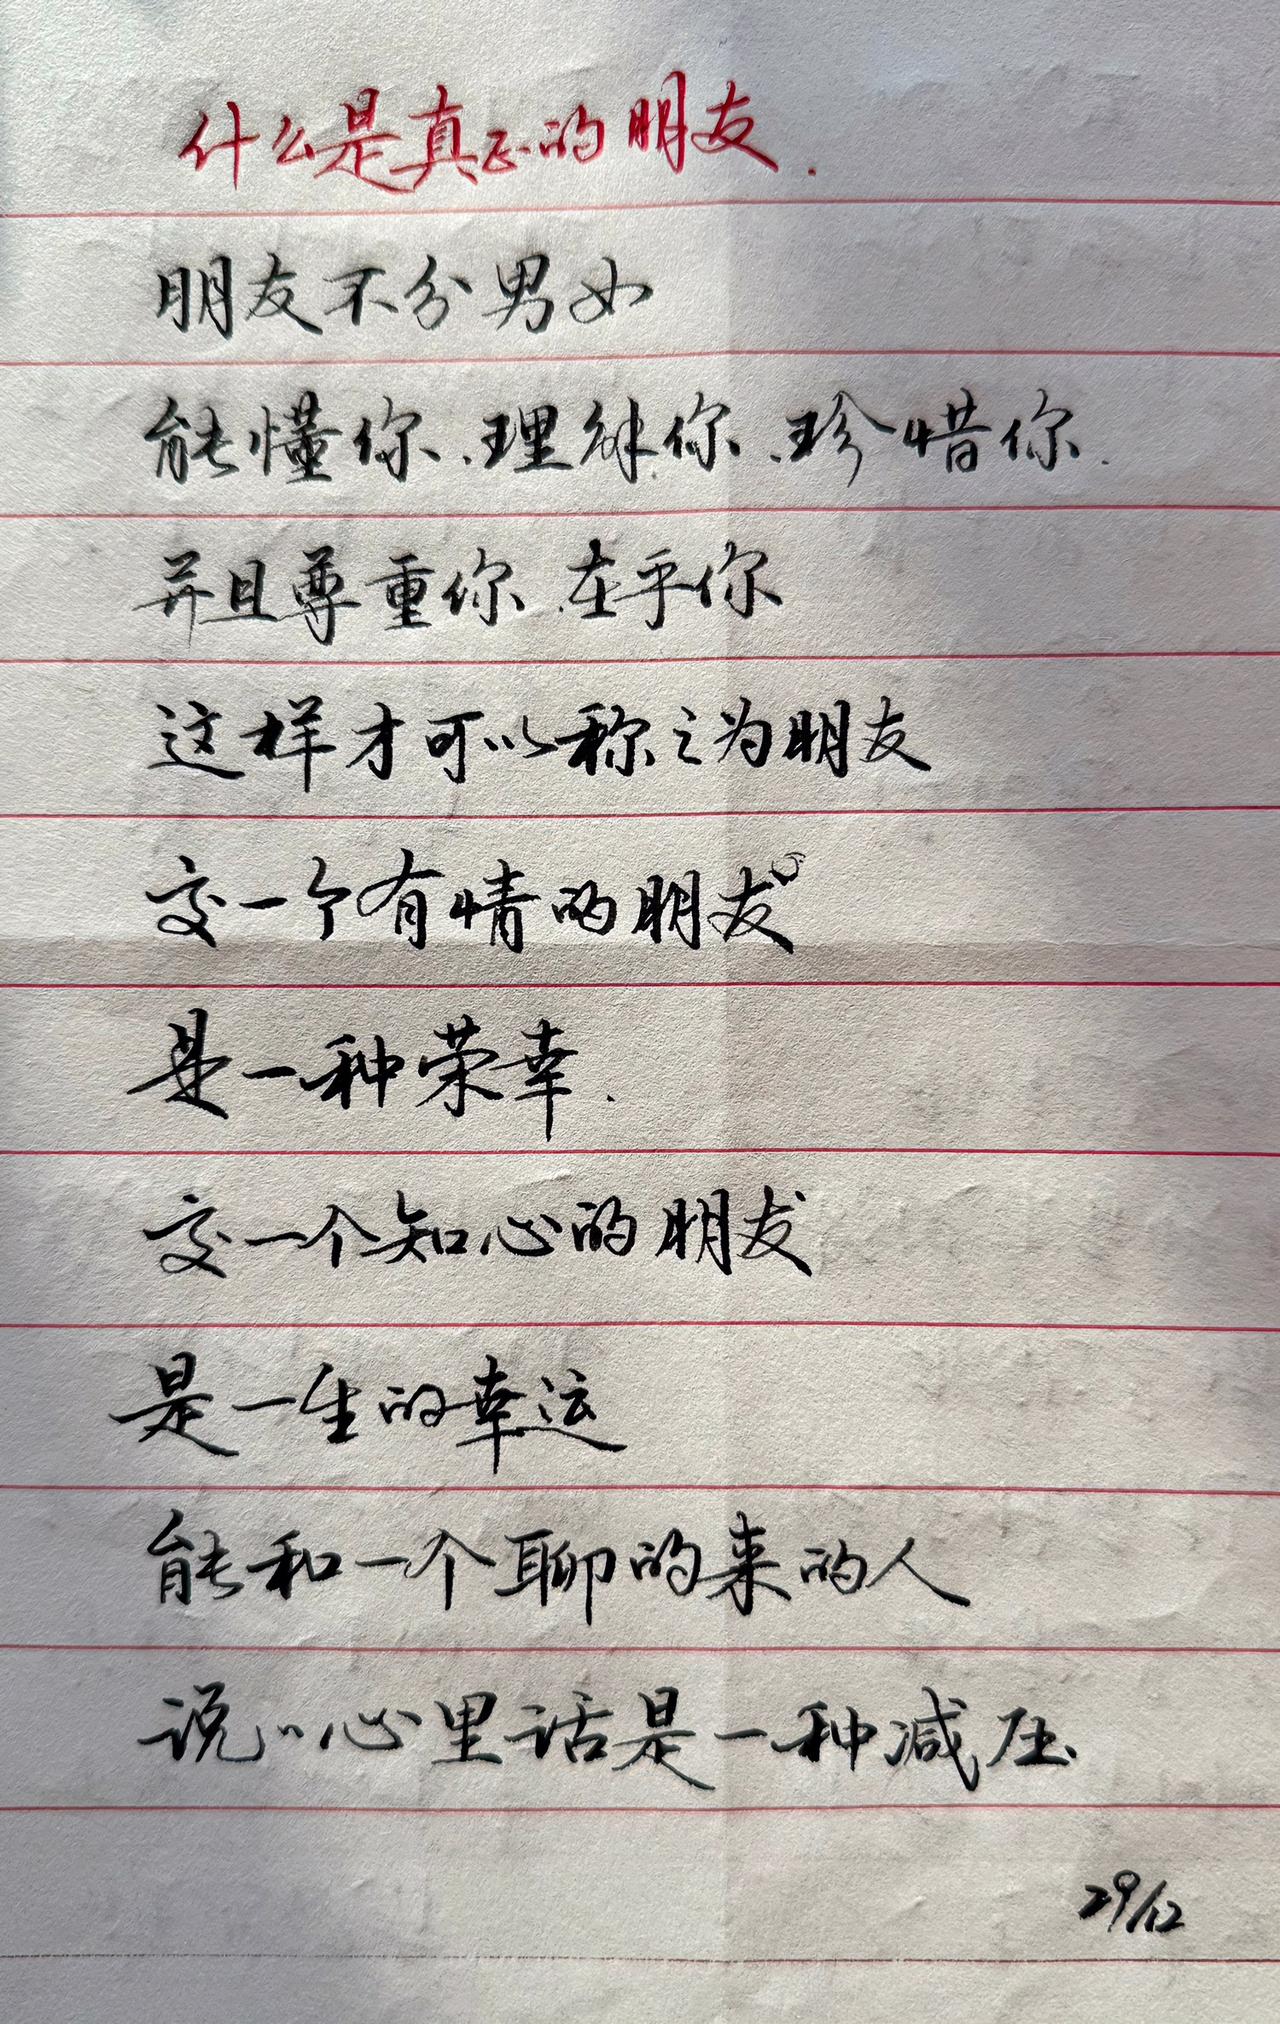 什么是真正的朋友.
朋友不分男女
能懂你、理解你、珍惜你.
并且尊重你、在乎你
这样才可以称之为朋友
交一个有情的朋友
是一种荣幸.
交一个知心的朋友
是一生的幸运
能和一个聊的来的人
说说心里话是一种减压.
29/12